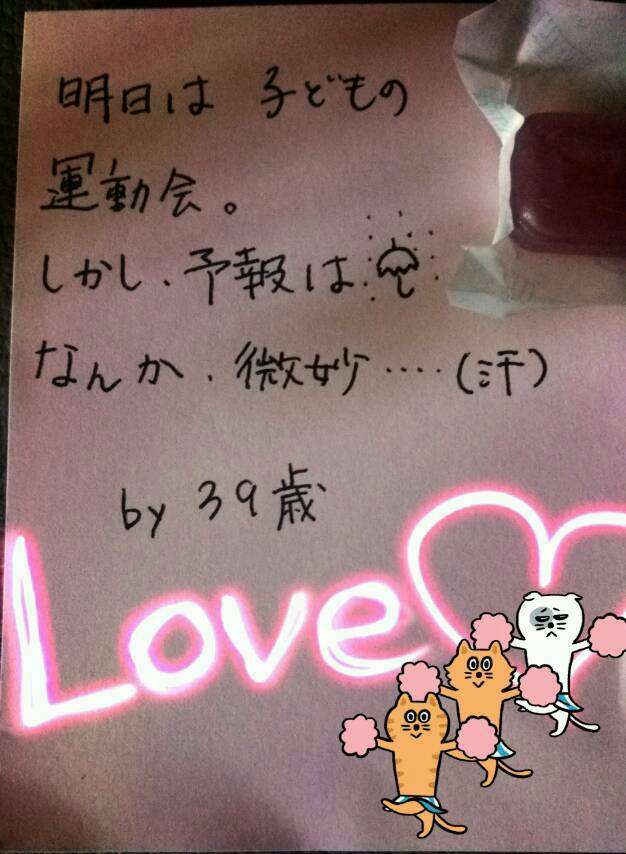 明日は 子どもの
運動会。
しかし、予報は☂
なんか、微妙‥‥(汗)
by 39歳
Love♡